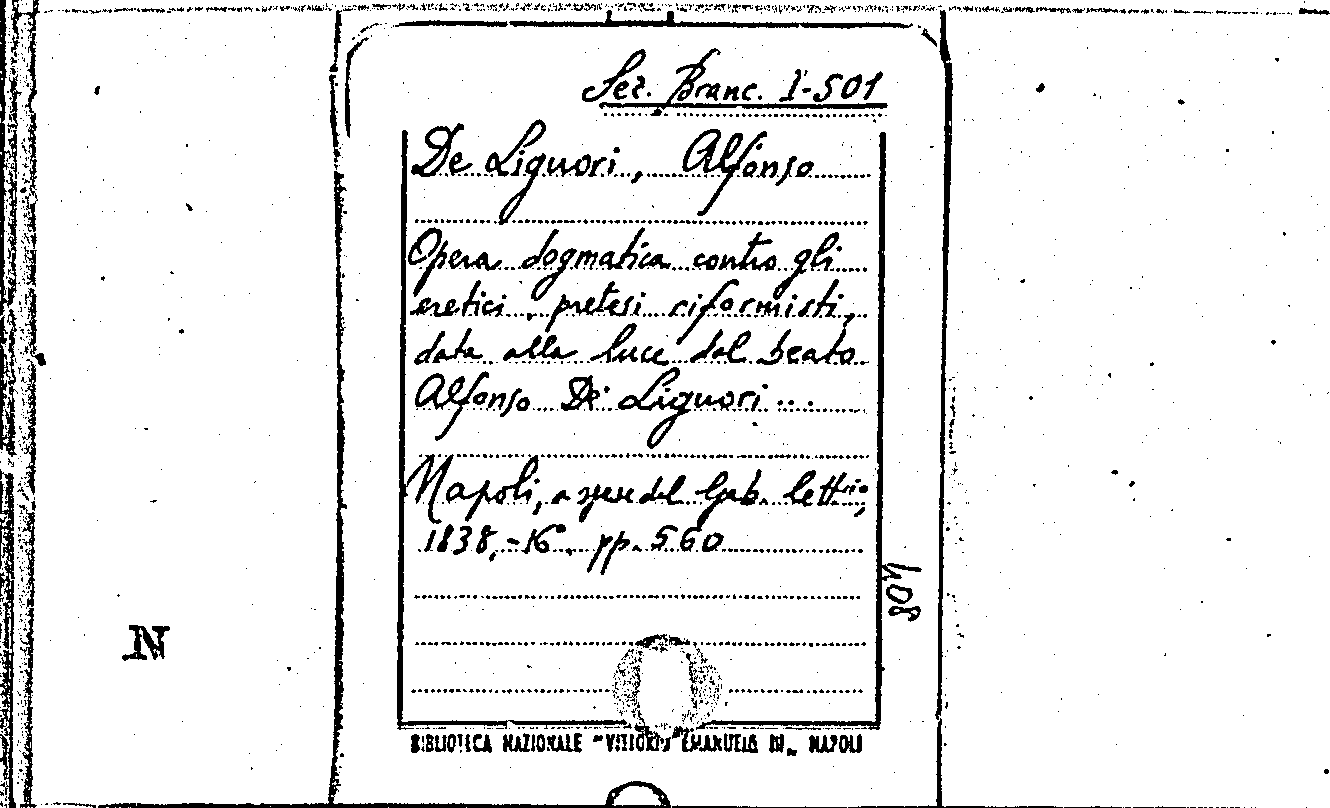 Sez. Branc. I-501
De Liguori, Alfonso
Opera dogmatica contro gli
eretici pretesi riformisti,
data alla luce dal beato
Alfonso De Liguori...
Napoli, a spese del Gab. lett.rio,
1838,-16°. pp. 560
N
BIBLIOTECA NAZIONALE "VITTORIO EMANUELE III„ NAPOLI